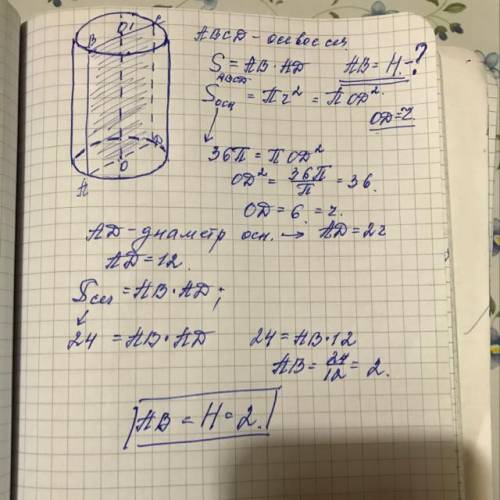 ABCD - осевое сеч
S ABCD = AB · AD AB = H. - ?
Sосн = πr² = πOD².
OD = r
36π = πOD²
OD² = 36π/π = 36.
OD = 6. = r.
AD - диаметр осн. → AD = 2r
AD = 12.
Sсеч = AB · AD;
24 = AB · AD 24 = AB · 12
AB = 24/12 = 2.
AB = H = 2.
O'
B
A
O